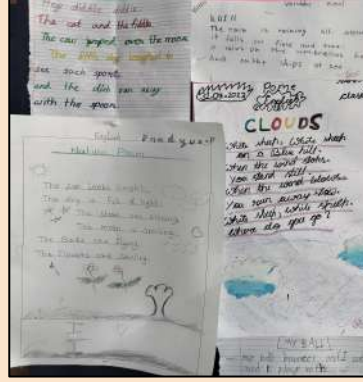 Hey diddle diddle
The cat and the fiddle
The cow jumped over the moon
The little dog laughed to
see such sport
and the dish ran away
with the spoon.
RAIN
The rain is raining all
It falls on field and tree
It rains on the umbrellas
And on the ships at sea
Pome
CLOUDS
White sheep, White sheep
on a Blue hill.
When the wind stops.
You stand still
When the wind blows
You run away slow.
White sheep, white sheep.
where do you go?
English
The sun looks bright
The sky is full of light
The stars are shining
The moon is smiling
The birds are flying
The flowers are smiling
My BALL